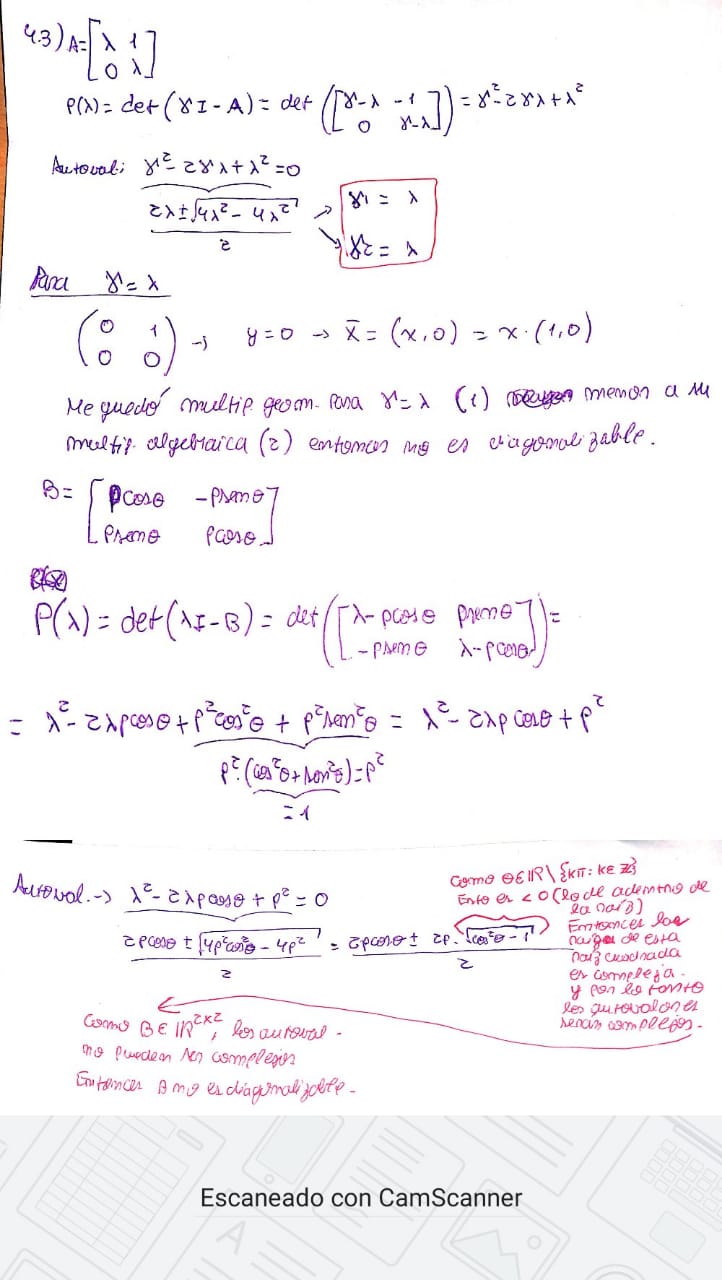 4.3) A = [λ 1
0 λ]
P(λ) = det(γI - A) = det([γ-λ -1
0 γ-λ]) = γ² - 2γλ + λ²
Autoval: γ² - 2γλ + λ² = 0
2λ ± √4λ² - 4λ²
2
γ1 = λ
γ2 = λ
Para γ = λ
(0 1
0 0) → y = 0 → x̄ = (x, 0) = x · (1, 0)
Me quedó multip. geom. Para γ = λ (1) menor a su
multip. algebraica (2) entonces no es diagonalizable.
B = [ρcosθ -ρsenθ
ρsenθ ρcosθ]
P(λ) = det(λI - B) = det([λ - ρcosθ ρsenθ
-ρsenθ λ - ρcosθ]) =
= λ² - 2λρcosθ + ρ²cos²θ + ρ²sen²θ = λ² - 2λρcosθ + ρ²
ρ².(cos²θ + sen²θ) = ρ²
= 1
Autoval. → λ² - 2λρcosθ + ρ² = 0
2ρcosθ ± √4ρ²cos²θ - 4ρ²
2
= 2ρcosθ ± 2ρ·√cos²θ - 1
2
Como θ ∈ ℝ \ {kπ: k ∈ ℤ}
Esto es < 0 (lo de adentro de
la raíz)
Entonces las
de esta
raíz cuadrada
es compleja.
y por lo tanto
los autovalores
seran complejos.
Como B ∈ ℝ²ˣ², los autoval.
no pueden ser complejos
Entonces B no es diagonalizable.
Escaneado con CamScanner